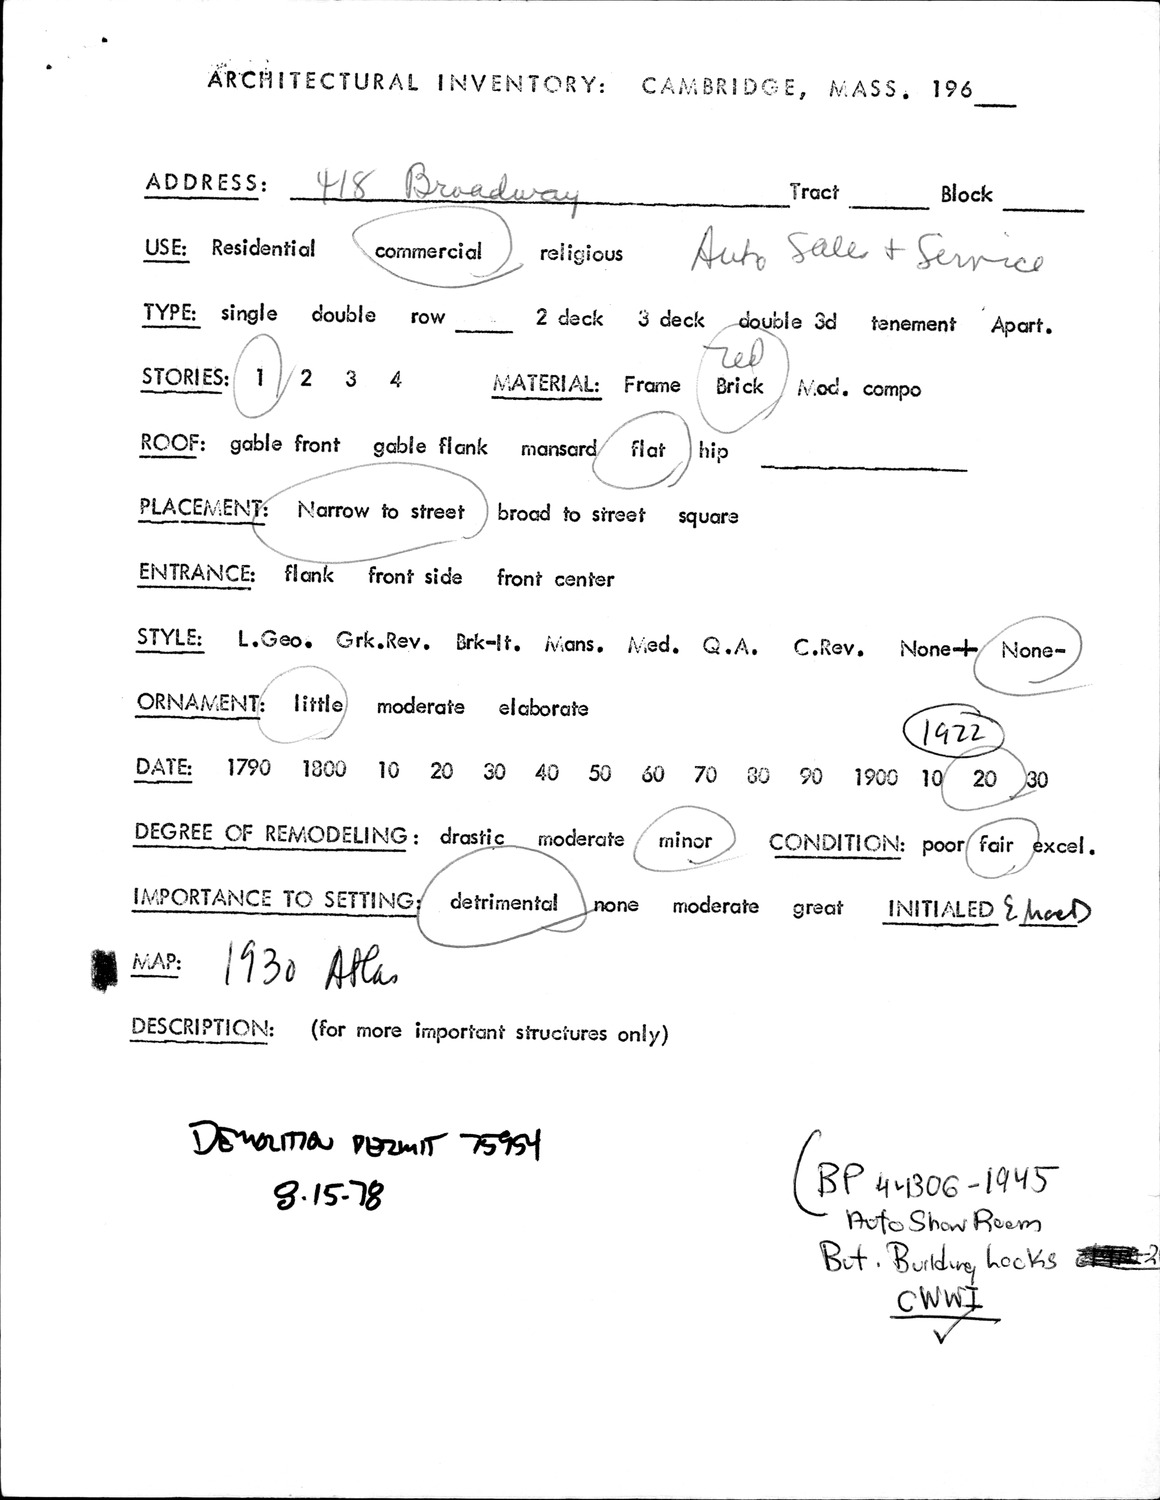 ARCHITECTURAL INVENTORY: CAMBRIDGE, MASS. 196___
ADDRESS: 418 Broadway Tract ______ Block ______
USE: Residential commercial religious Auto Sales + Service
TYPE: single double row ____ 2 deck 3 deck double 3d tenement Apart.
red
STORIES: 1 2 3 4 MATERIAL: Frame Brick Mod. compo
ROOF: gable front gable flank mansard flat hip ______
PLACEMENT: Narrow to street broad to street square
ENTRANCE: flank front side front center
STYLE: L.Geo. Grk.Rev. Brk-It. Mans. Med. Q.A. C.Rev. None+ None-
ORNAMENT: little moderate elaborate
1922
DATE: 1790 1800 10 20 30 40 50 60 70 80 90 1900 10 20 30
DEGREE OF REMODELING: drastic moderate minor CONDITION: poor fair excel.
IMPORTANCE TO SETTING: detrimental none moderate great INITIALED
MAP: 1930 Atlas
DESCRIPTION: (for more important structures only)
DEMOLITION PERMIT 75954
8-15-78
(BP 44306-1945
Auto Show Room
But. Building looks
CWWI